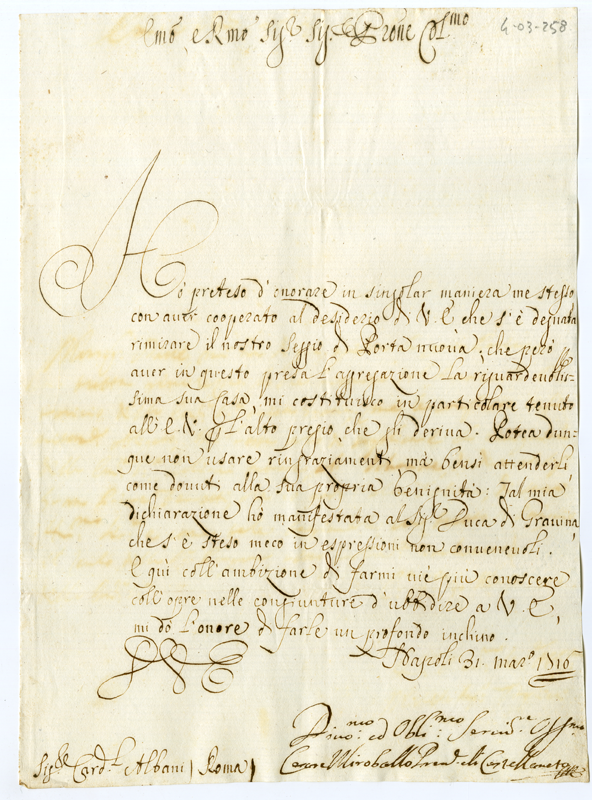 Emo e Rmo Sigr Sigr e Prone Colmo
4-03-258
Hò preteso d'onorare in singolar maniera me stesso
con auer cooperato al desiderio di V. E. che s'è degnata
rimirare il nostro seggio di Porta nuoua, che però p
auer in questo presa l'aggregazione la riguardeuolis-
sima sua Casa, mi costituisco in particolare tenuto
all'E. V. p l'alto pregio, che gli deriva. Potea dun-
que non usare ringraziamenti mà bensi attenderli,
come douuti alla sua propria benignità: Tal mia
dichiarazione hò manifestata al Sigr Duca di Gravina,
che s'è steso meco in espressioni non conueneuoli.
E qui coll'ambizione di farmi uie più conoscere
coll'opre nelle congiunture d'ubbidire a V. E.,
mi dò l'onore di farle un profondo inchino.
Napoli 31. marzo 1716
V. E.
Diuomo: ed Oblimo: Seruire
Cesare Miroballo Prenpe di Castellaneta
Sigr Cardl Albani / Roma /